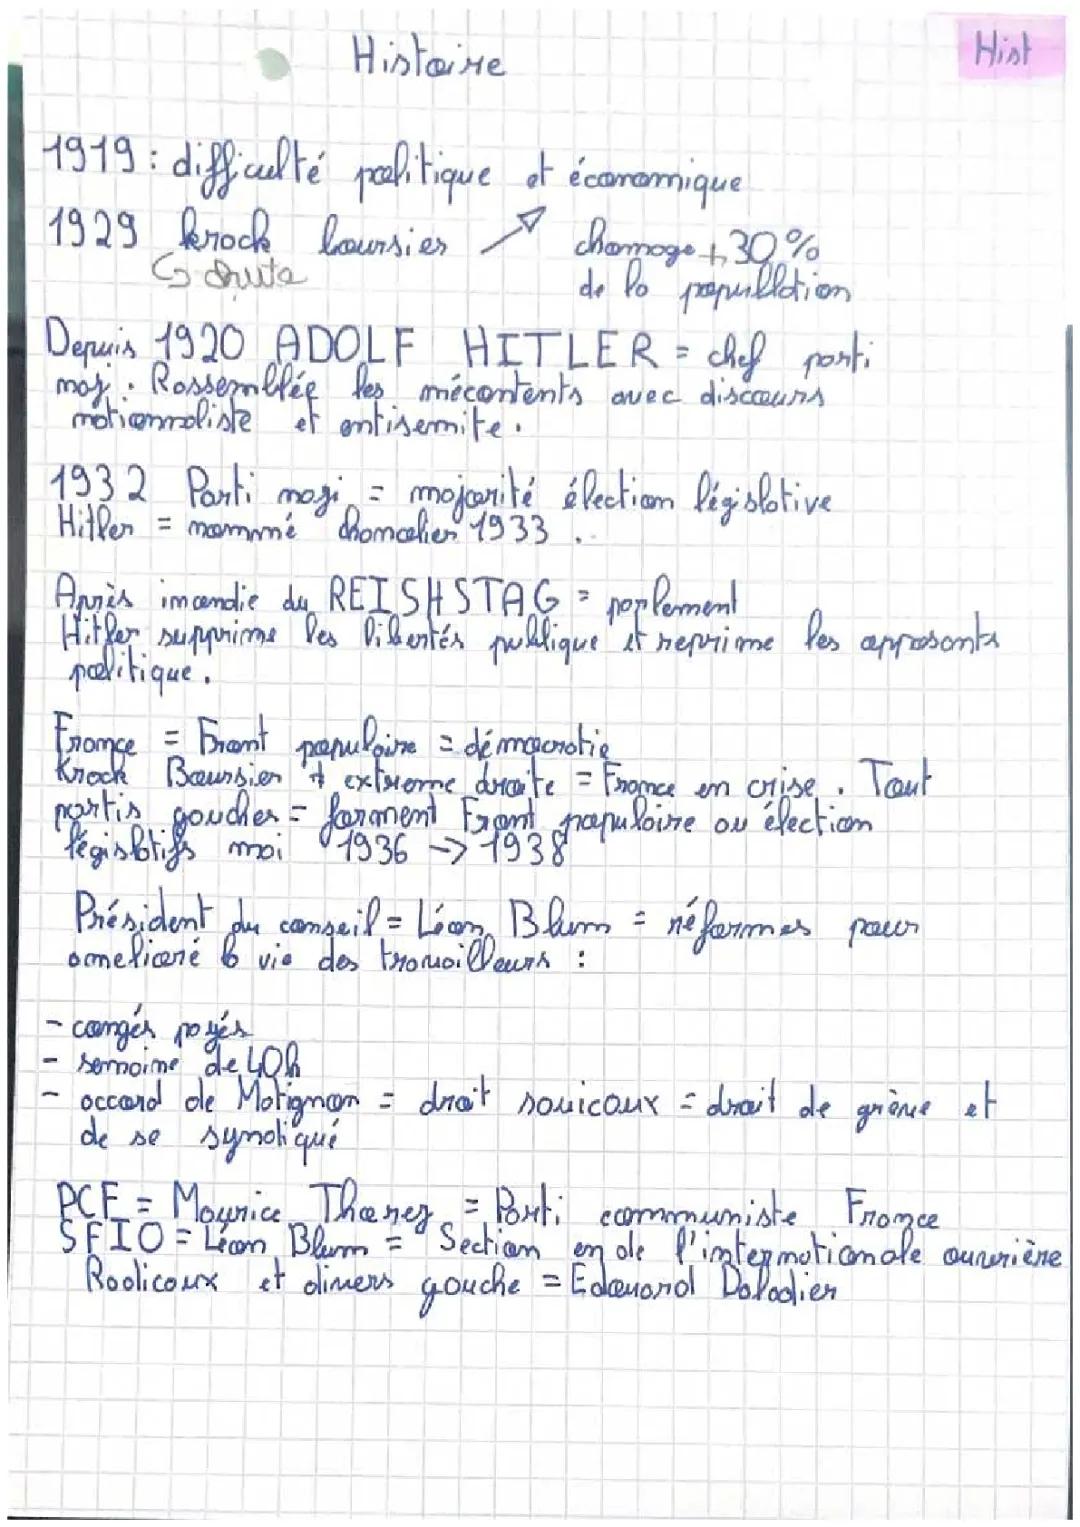 Histoire
Hist
1919 : difficulté politique et économique
1929 krock boursier ↗ chomage + 30%
↪ chute
de la popullation
Depuis 1920 ADOLF HITLER = chef parti
nazi. Rassemblée les mécontents avec discours
nationnaliste et antisemite.
1932 Parti nazi = majorité élection législative
Hitler = nommé chancelier 1933.
Après incendie du REISHSTAG = parlement
Hitler supprime les libertés publique et reprime les opposants
politique.
France = Front populaire = démocratie
Krock Boursier + extreme droite = France en crise. Tout
partis gauches = forment Front populaire au élection
législatifs mai 1936 → 1938
Président du conseil = Léon Blum = réformes pour
amelioré la vie des travailleurs :
- congés payés
- semaine de 40h
- accord de Matignon = droit sauicaux = droit de grève et
de se syndiqué
PCF = Maurice Thorez = Parti communiste France
SFIO = Léon Blum = Section en de l'internationale ouvrière
Radicaux et divers gauche = Edouard Daladier